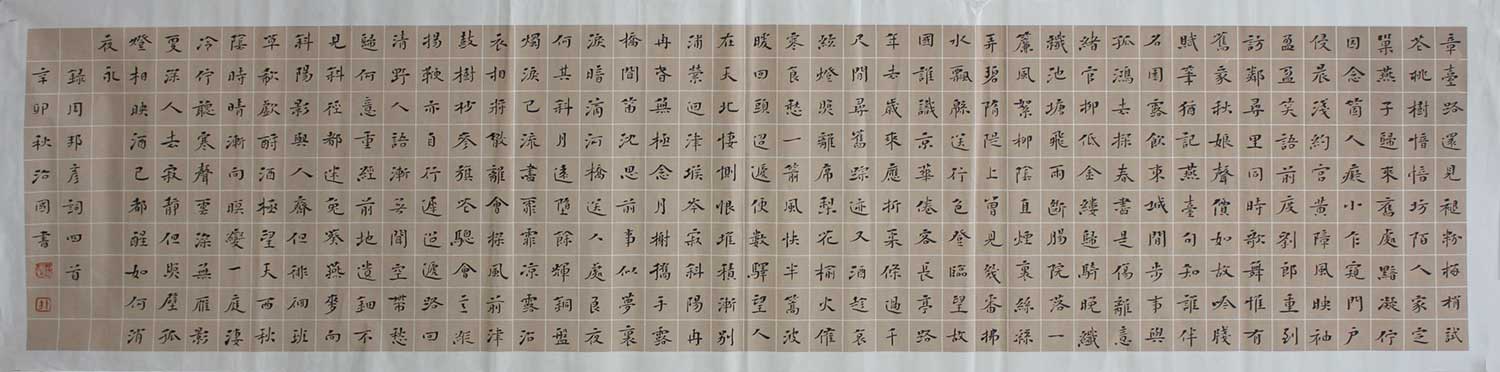 章臺路還見褪粉梅梢試
花桃樹愔愔坊陌人家定
巢燕子歸來舊處黯凝佇
因念箇人癡小乍窺門戶
侵晨淺約宮黃障風映袖
盈盈笑語前度劉郎重到
訪鄰尋里同時歌舞惟有
舊家秋娘聲價如故吟牋
賦筆猶記燕臺句知誰伴
名園露飲東城閒步事與
孤鴻去探春盡是傷離意
緒官柳低金縷歸騎晚纖
纖池塘飛雨斷腸院落一
簾風絮柳陰直煙裏絲絲
弄碧隋堤上曾見幾番拂
水飄緜送行色登臨望故
國誰識京華倦客長亭路
年去歲來應折柔條過千
尺閒尋舊蹤迹又酒趁哀
絃燈照離席梨花榆火催
寒食愁一箭風快半篙波
暖回頭迢遞便數驛望人
在天北悽惻恨堆積漸別
浦縈迴津堠岑寂斜陽冉
冉春無極念月榭攜手露
橋聞笛沈思前事似夢裏
淚暗滴河橋送人處良夜
何其斜月遠墮餘輝銅盤
燭淚已流盡霏霏涼露沾
衣相將散離會探風前津
鼓樹杪參旗花驄會意縱
揚鞭亦自行遲迢遞路回
清野人語漸無聞空帶愁
歸何意重經前地遺鈿不
見斜徑都迷兔葵燕麥向
斜陽影與人齊但徘徊班
草欷歔酹酒極望天西秋
陰時晴漸向暝變一庭淒
冷佇聽寒聲雲深無雁影
更深人去寂靜但照壁孤
燈相映酒已都醒如何消
夜永
錄周邦彥詞四首
辛卯秋治國書